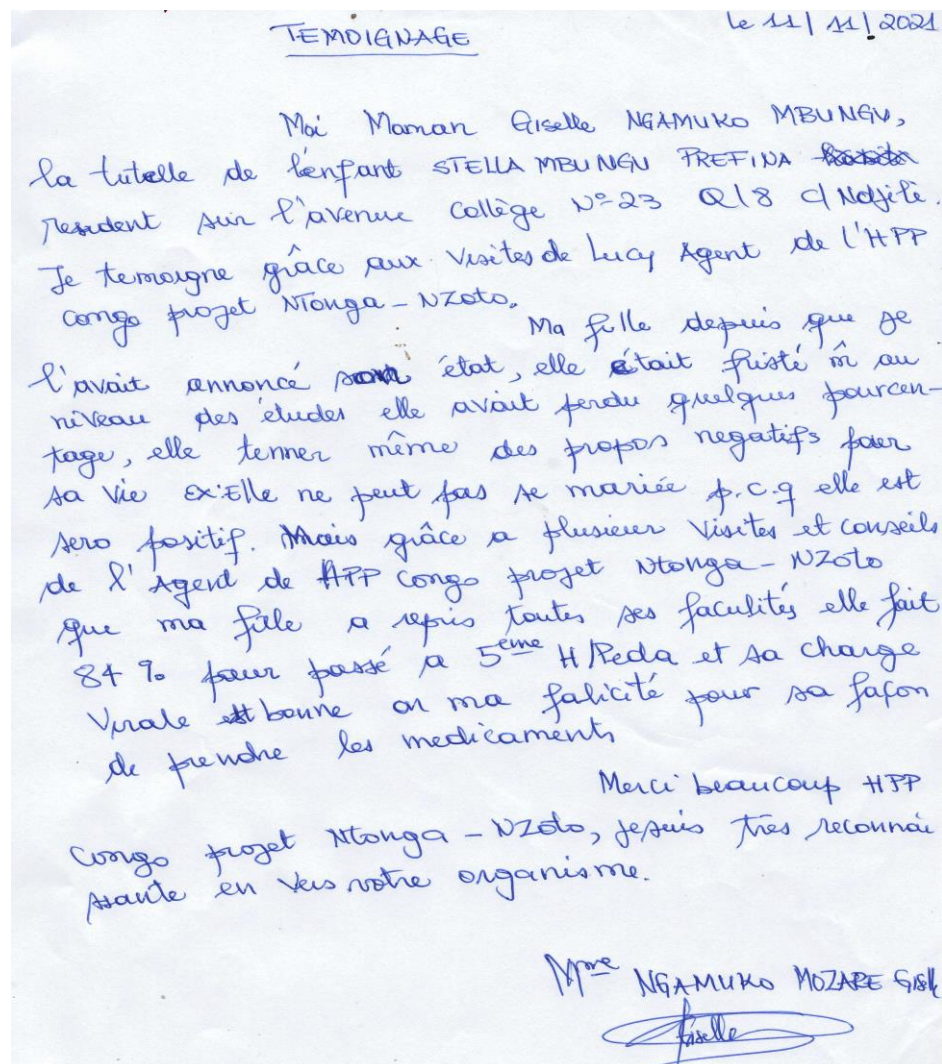 TEMOIGNAGE
le 11/11/2021
Moi Maman Giselle NGAMUKO MBUNGU,
la tutelle de l'enfant STELLA MBUNGU PREFINA
resident sur l'avenue Collège N°23 Q/8 C/Ndjili.
Je temoigne grâce aux Visites de Lucy Agent de l'HPP
congo projet NTonga-NZoto.
Ma fille depuis que je
l'avait annoncé son état, elle était fristé m̂ au
niveau des études elle avait perdu quelques pourcen-
tage, elle tenner même des propos negatifs pour
sa vie ex: Elle ne peut pas se mariée p.c.q elle est
sero positif. Mais grâce a plusieur Visites et conseils
de l'Agent de HPP Congo projet Ntonga-NZoto
que ma fille a repris toutes ses faculités elle fait
84 % pour passé a 5eme H/Peda et sa charge
Virale est bonne on ma falicité pour sa façon
de prendre les medicaments
Merci beaucoup HPP
Congo projet Ntonga-NZoto, je suis très reconnai
ssante en vers votre organisme.
Mme NGAMUKO MOZARE Giselle
Giselle